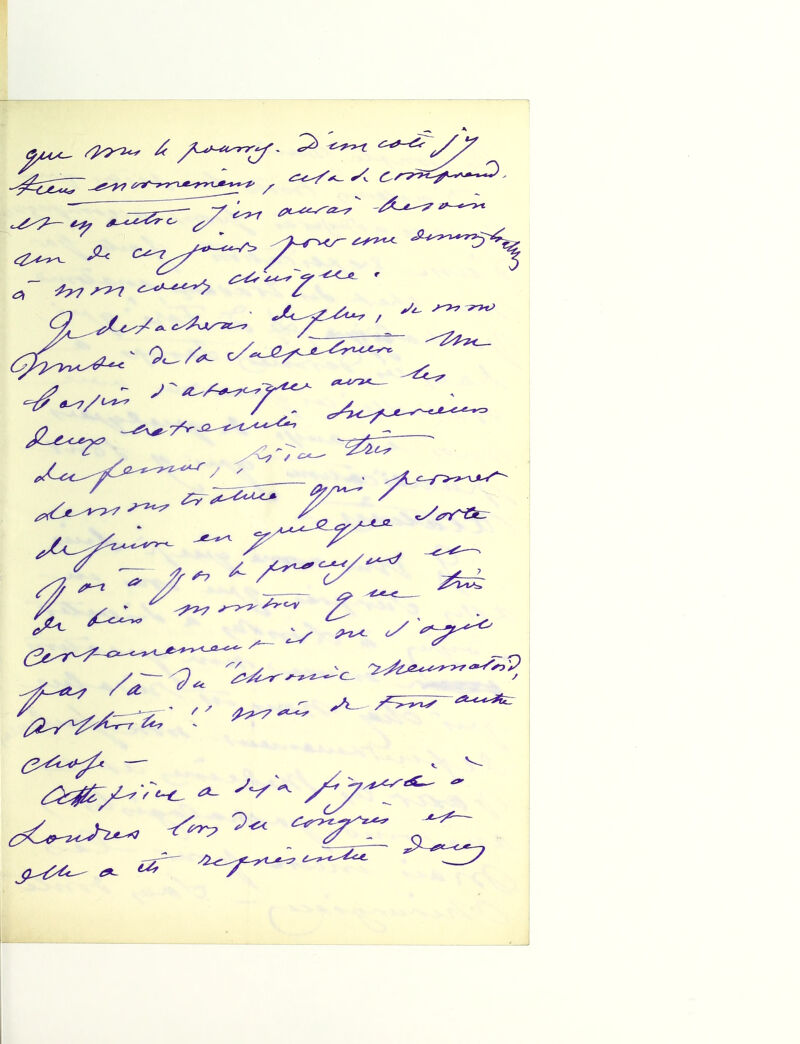 que vous le pourrez. D'un coté j'y
tiens enormement, cela se comprend.
et en outre j'en aurai besoin
un de ces jours pour une demonstration
à mon cours clinique.
Je detacherai de plus, de mon
Musée de la Salpêtrière un
bassin d'ataxique avec les
deux extremités superieures
du femur, pièce très
demonstrative qui permet
de suivre en quelque sorte
pas à pas le processus et
de bien montrer que très
certainement il ne s'agit
pas là du "chronic rheumatoid,
arthritis"!! mais de tout autre
chose —
Cette pièce a deja figuré à
Londres lors du congrès et
elle a été représentée dans